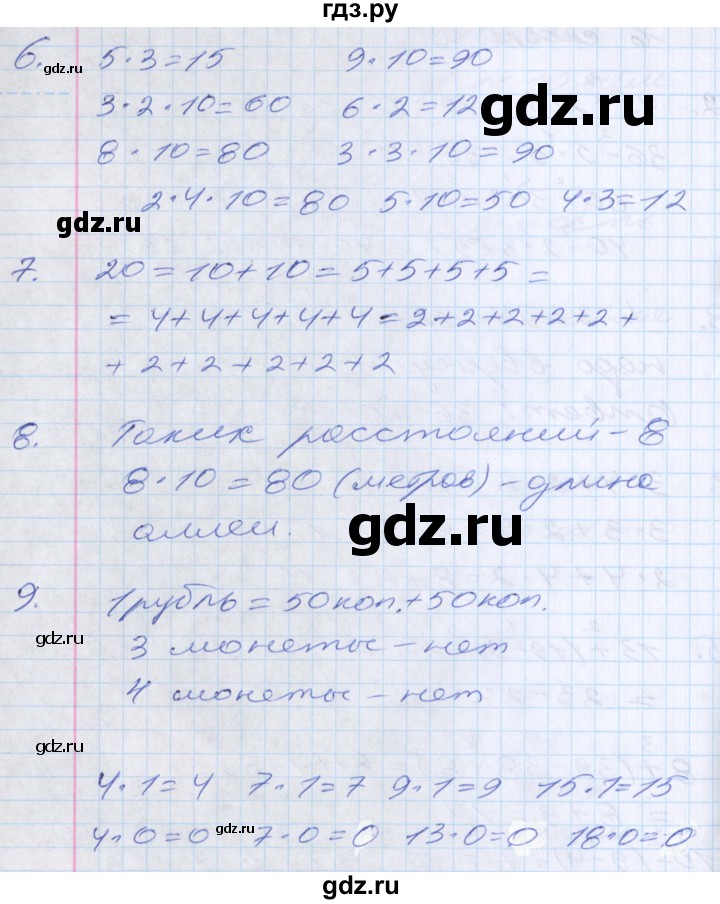 гдз.ру
6. 5·3=15 9·10=90
3·2·10=60 6·2=12
gdz.ru
8·10=80 3·3·10=90
2·4·10=80 5·10=50 4·3=12
gdz.ru
7. 20=10+10=5+5+5+5=
=4+4+4+4+4=2+2+2+2+2+
+2+2+2+2+2
8. Таких расстояний-8
8·10=80 (метров)-длина
аллеи.
gdz.ru
9. 1рубль=50коп.+50коп.
gdz.ru
3 монеты-нет
4 монеты-нет
gdz.ru
4·1=4 7·1=7 9·1=9 15·1=15
gdz.ru
4·0=0 7·0=0 13·0=0 18·0=0
gdz.ru